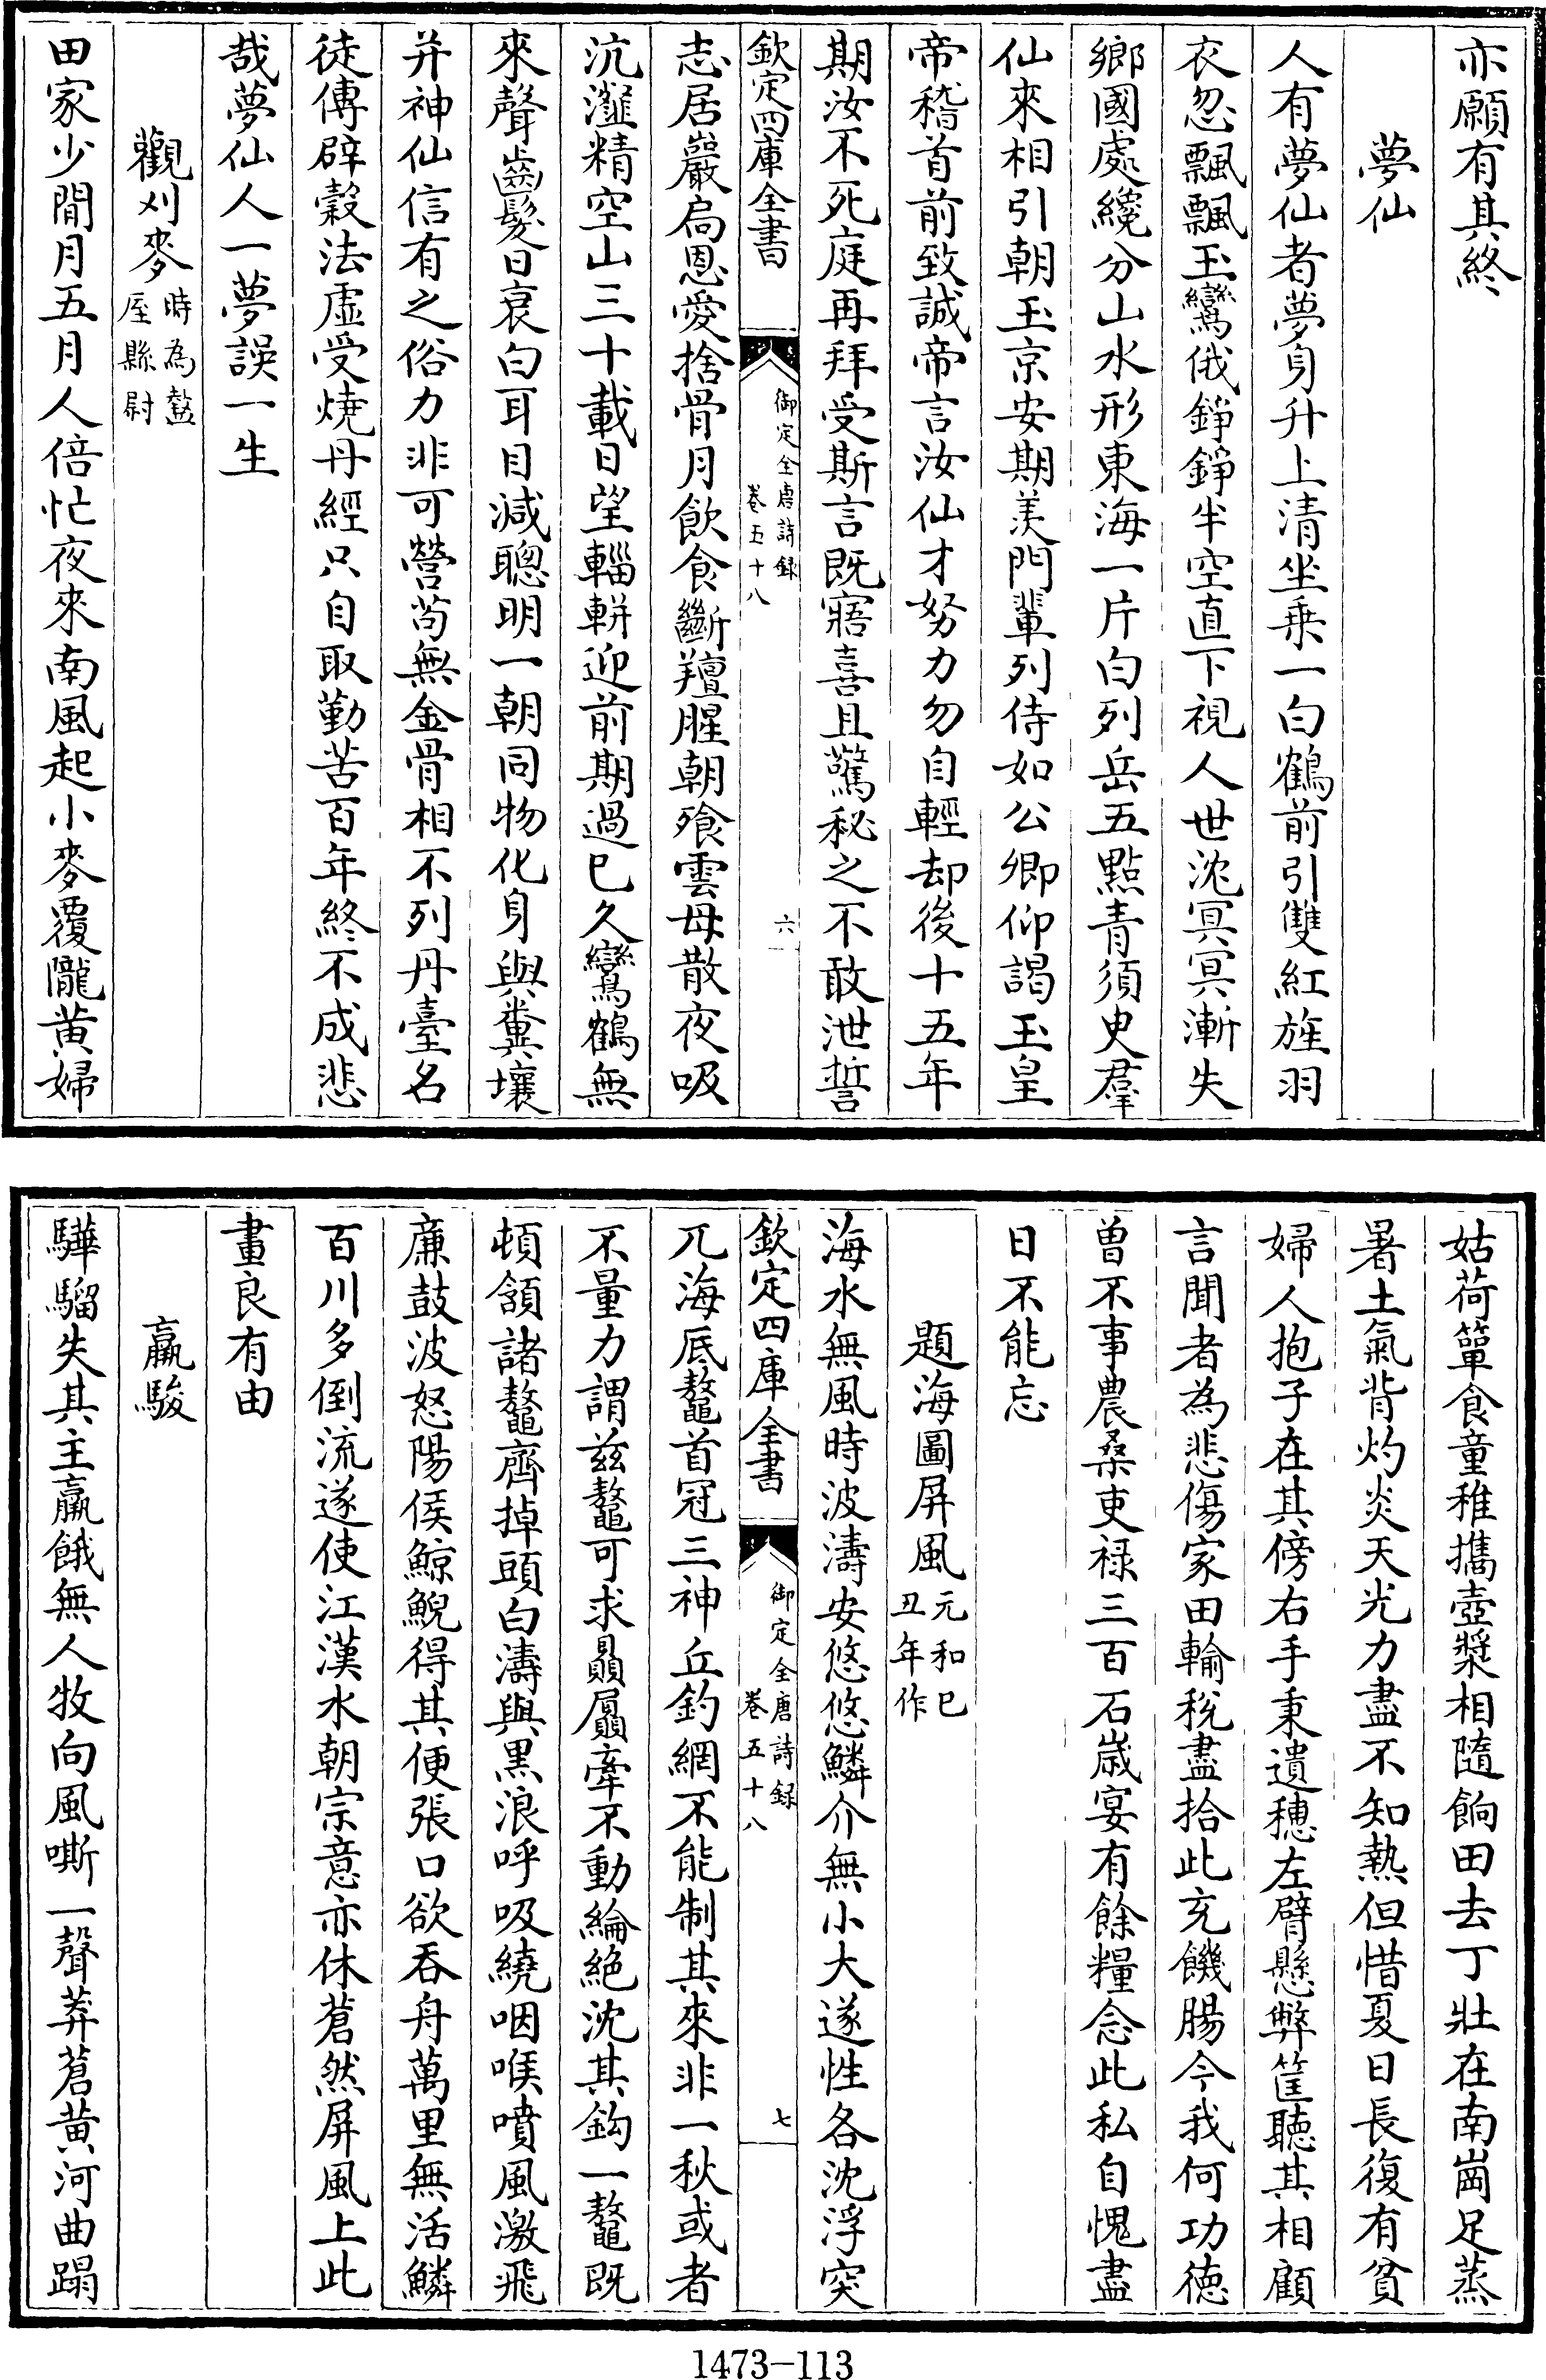 亦願有其終
夢仙
人有夢仙者夢身升上清坐乗一白鶴前引雙紅旌羽
衣忽飄飄玉鸞俄錚錚半空直下視人世沈冥冥漸失
鄉國處纔分山水形東海一片白列岳五點青須史羣
仙來相引朝玉京安期羡門輩列侍如公卿仰謁玉皇
帝稽首前致誠帝言汝仙才努力勿自輕却後十五年
期汝不死庭再拜受斯言既寤喜且驚秘之不敢泄誓
欽定四庫全書
御定全唐詩録
卷五十八
六
志居巖扃恩愛捨骨月飲食斷羶腥朝飱雲母散夜吸
沆瀣精空山三十載日望輜軿迎前期過已久鸞鶴無
來聲齒髮日衰白耳目減聰明一朝同物化身與糞壤
并神仙信有之俗力非可營茍無金骨相不列丹臺名
徒傳辟穀法虚受燒丹經只自取勤苦百年終不成悲
哉夢仙人一夢誤一生
觀刈麥時為盩
厔縣尉
田家少閒月五月人倍忙夜來南風起小麥覆隴黄婦
姑荷簞食童稚攜壺漿相隨餉田去丁壯在南崗足蒸
暑土氣背灼炎天光力盡不知熱但惜夏日長復有貧
婦人抱子在其傍右手秉遺穗左臂懸弊筐聽其相顧
言聞者為悲傷家田輸稅盡拾此充饑腸今我何功徳
曽不事農桑吏禄三百石歳宴有餘糧念此私自愧盡
日不能忘
題海圖屏風元和已
丑年作
海水無風時波濤安悠悠鱗介無小大遂性各沈浮突
欽定四庫全書
御定全唐詩録
卷五十八
七
兀海底鼇首冠三神丘釣網不能制其來非一秋或者
不量力謂兹鼇可求贔屭牽不動綸絶沈其鈎一鼇既
頓頷諸鼇齊掉頭白濤與黒浪呼吸繞咽喉噴風激飛
廉鼓波怒陽侯鯨鯢得其便張口欲吞舟萬里無活鱗
百川多倒流遂使江漢水朝宗意亦休蒼然屏風上此
畫良有由
羸駿
驊騮失其主羸餓無人牧向風嘶一聲莽蒼黄河曲蹋
1473-113